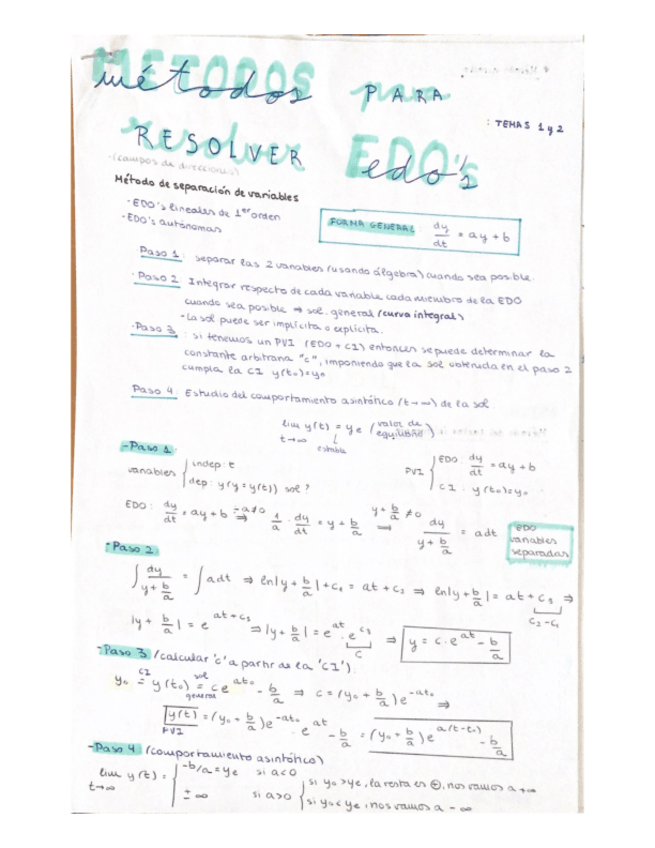 métodos para
PARA
: TEMAS 1 y 2
RESOLVER EDO's
resolver edo's
(campos de direcciones)
Método de separación de variables
· EDO's lineales de 1er orden
· EDO's autónomas
FORMA GENERAL: dy/dt = ay + b
Paso 1: separar las 2 variables (usando álgebra) cuando sea posible.
· Paso 2 Integrar respecto de cada variable cada miembro de la EDO
cuando sea posible ⇒ sol. general (curva integral)
- La sol puede ser implícita o explícita.
· Paso 3: si tenemos un PVI (EDO + CI) entonces se puede determinar la
constante arbitraria "c", imponiendo que la sol obtenida en el paso 2
cumpla la CI y(t₀)=y₀
Paso 4: Estudio del comportamiento asintótico (t→∞) de la sol
lim y(t) = ye (valor de equilibrio)
t→∞
estable
- Paso 1:
variables { indep: t
dep: y (y = y(t)) sol?
PVI { EDO dy/dt = ay + b
CI. y(t₀)=y₀
EDO: dy/dt = ay + b ⇒ (a≠0) 1/a · dy/dt = y + b/a ⇒ (y + b/a ≠ 0) dy/(y + b/a) = a dt
EDO variables separadas
- Paso 2
∫ dy/(y + b/a) = ∫ a dt ⇒ ln|y + b/a| + c₁ = at + c₂ ⇒ ln|y + b/a| = at + c₃ ⇒
c₂ - c₁
|y + b/a| = e^(at + c₃) ⇒ |y + b/a| = e^(at) · e^(c₃) ⇒ y = c · e^(at) - b/a
c
- Paso 3 (calcular 'c' a partir de la 'CI').
y₀ = (CI) y(t₀) = (sol general) c e^(at₀) - b/a ⇒ c = (y₀ + b/a) e^(-at₀) ⇒
y(t) = (y₀ + b/a) e^(-at₀) · e^(at) - b/a = (y₀ + b/a) e^(a(t-t₀)) - b/a
PVI
- Paso 4 (comportamiento asintótico)
lim y(t) = { -b/a = ye si a<0
t→∞
± ∞ si a>0 { si y₀ > ye, la resta es ⊕, nos vamos a +∞
si y₀ < ye, nos vamos a -∞